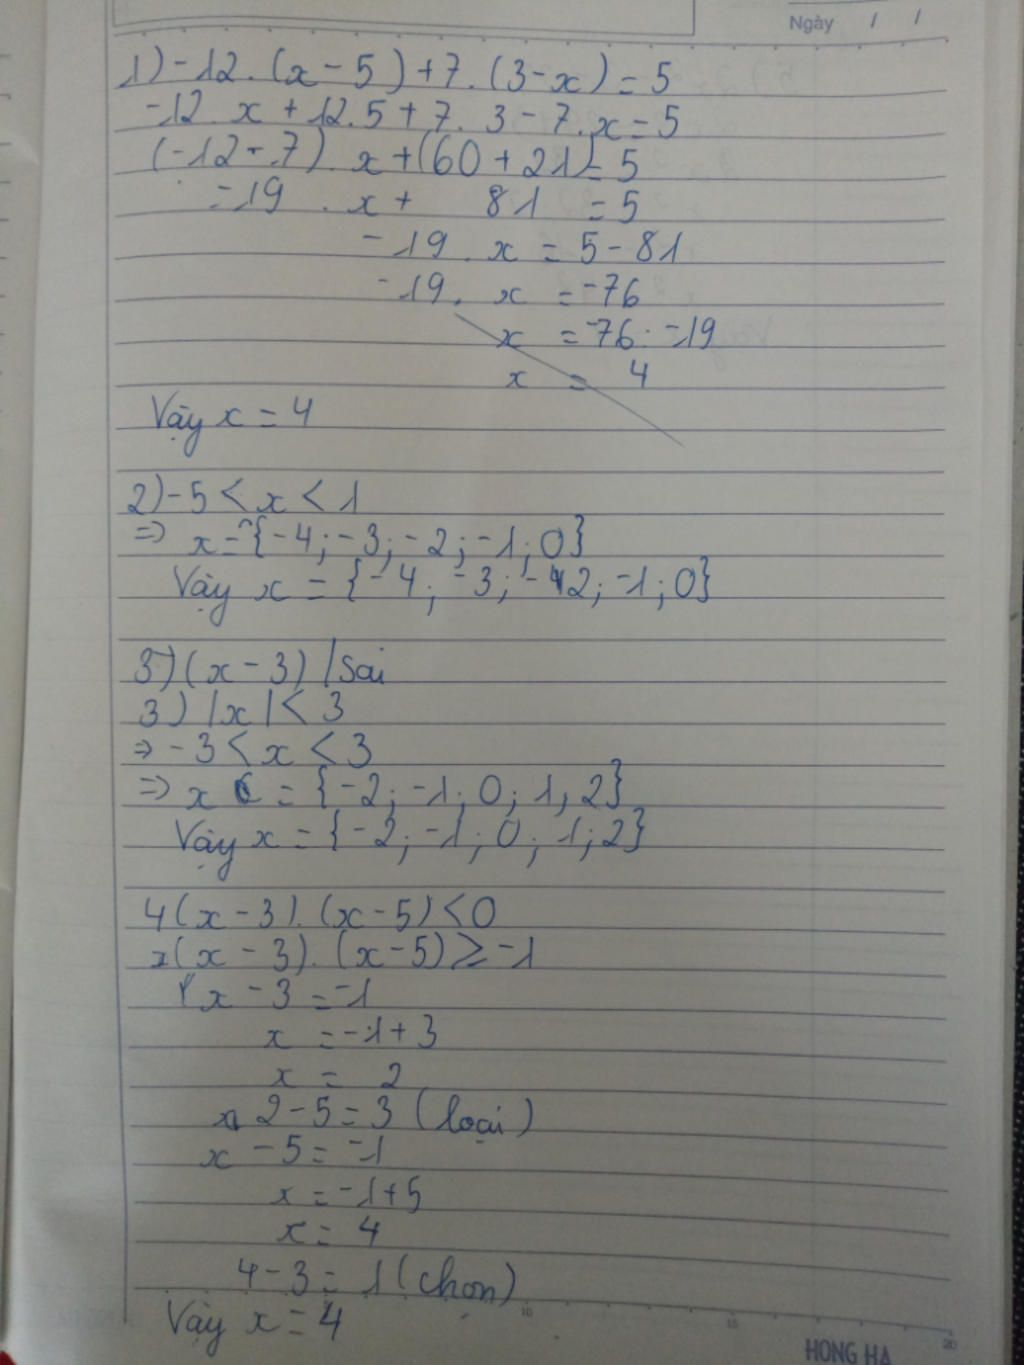 Ngày / /
1) -12 . (x - 5) + 7 . (3 - x) = 5
-12 . x + 12 . 5 + 7 . 3 - 7 . x = 5
(-12 - 7) . x + (60 + 21) = 5
= 19 . x + 81 = 5
-19 . x = 5 - 81
-19 . x = -76
x = -76 : -19
x = 4
Vậy x = 4
2) -5 < x < 1
=> x = {-4; -3; -2; -1; 0}
Vậy x = {-4; -3; -2; -1; 0}
3) (x - 3) / Sai
3) |x| < 3
=> -3 < x < 3
=> x = {-2; -1; 0; 1; 2}
Vậy x = {-2; -1; 0; 1; 2}
4 (x - 3) . (x - 5) < 0
(x - 3) . (x - 5) ≥ -1
x - 3 = -1
x = -1 + 3
x = 2
2 - 5 = 3 (loại)
x - 5 = -1
x = -1 + 5
x = 4
4 - 3 = 1 (chọn)
Vậy x = 4
10 15 20
HONG HA